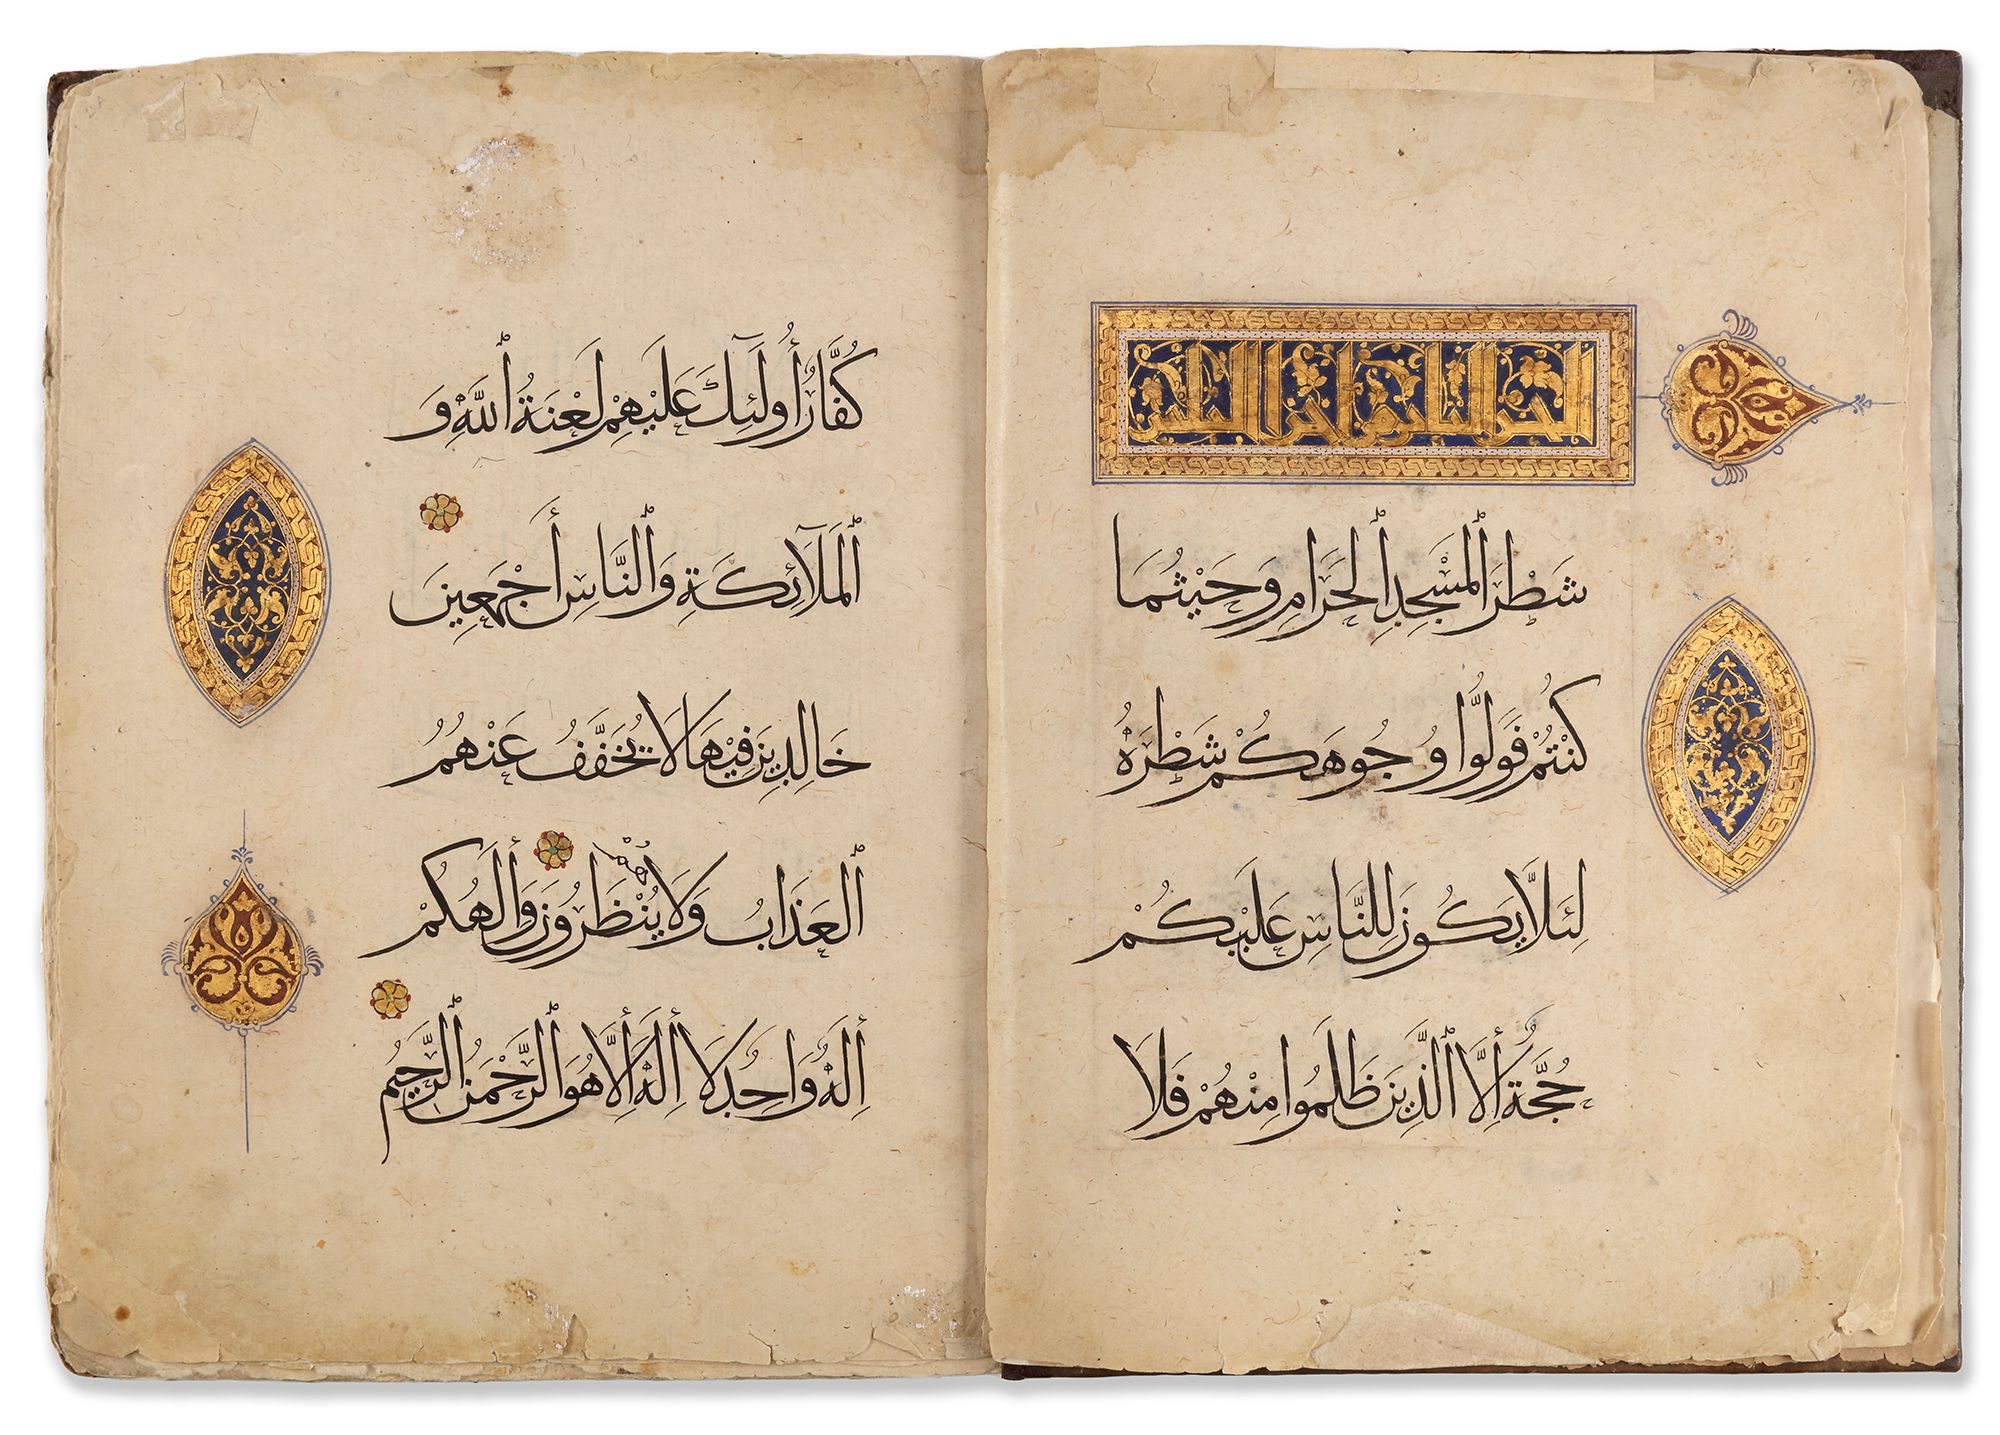 شَطْرَ ٱلمَسْجِدِ ٱلحَرَامِ وَحَيْثُمَا
كُنْتُمْ فَوَلُّوا وُجُوهَكُمْ شَطْرَهُ
لِئَلَّا يَكُونَ لِلنَّاسِ عَلَيْكُمْ
حُجَّةٌ إِلَّا ٱلَّذِينَ ظَلَمُوا مِنْهُمْ فَلَا
كُفَّارٌ أُولَٰئِكَ عَلَيْهِمْ لَعْنَةُ ٱللَّهِ وَ
ٱلمَلَآئِكَةِ وَٱلنَّاسِ أَجْمَعِينَ
خَالِدِينَ فِيْهَا لَا يُخَفَّفُ عَنْهُمُ
ٱلعَذَابُ وَلَا هُمْ يُنْظَرُونَ وَإِلَهُكُمْ
إِلَهٌ وَاحِدٌ لَا إِلَهَ إِلَّا هُوَ ٱلرَّحْمَنُ ٱلرَّحِيمُ